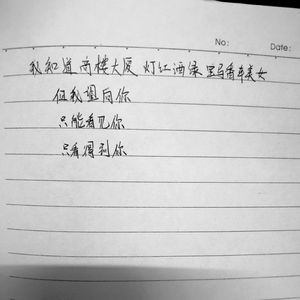 No: Date:
我知道 高楼大厦 灯红酒绿 宝马香车美女
但我望向你
只能看见你
只看得到你